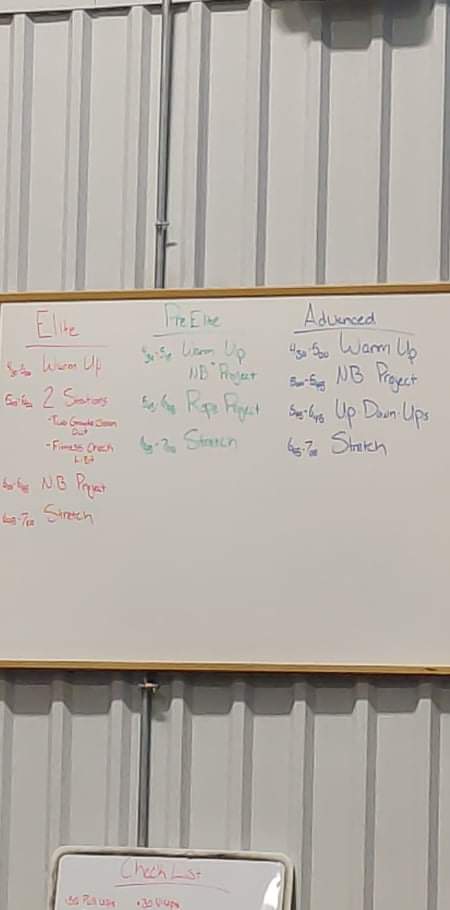 Elite
4:30-5:00 Warm Up
5:00-6:00 2 Stations
-Two
Out
-Fitness Check
List
NB Project
6:45-7:00 Stretch
Pre Elite
Warm Up
NB Project
5:45-6:45 Rope Project
6:45-7:00 Stretch
Advanced
4:30-5:00 Warm Up
5:00-5:45 NB Project
5:45-6:45 Up Down Ups
6:45-7:00 Stretch
Check List
•30 Pull Ups •30 V-Ups